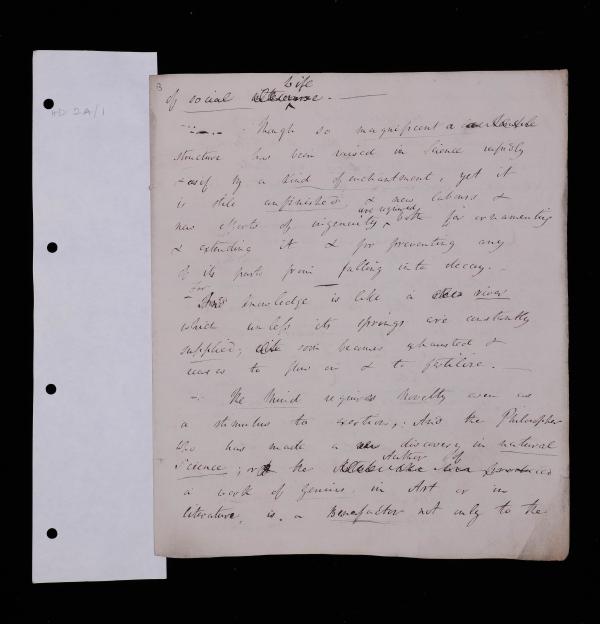 HD 2A/1
3
Life
of social
Though so magnificent a
structure has been raised in Science rapidly
& as if by a kind of enchantment, yet it
is still unfinished & new labours &
are required
new efforts of ingenuity both for ornamenting
& extending it & for preventing any
of its parts from falling into decay.
For
knowledge is like a river
which unless its springs are constantly
supplied; soon becomes exhausted &
ceases to flow on & to fertilise.
The Mind requires Novelty even as
a stimulus to exertion; And the Philosopher
who has made a discovery in natural
Author of
Science; or the
a work of Genius in Art or in
literature, is a Benefactor not only to the